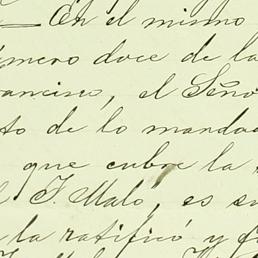 En el mismo
número doce de la
rancisco, el Seño
to de lo mandad
que cubre la
l J. Malo, es su
la ratificó y f